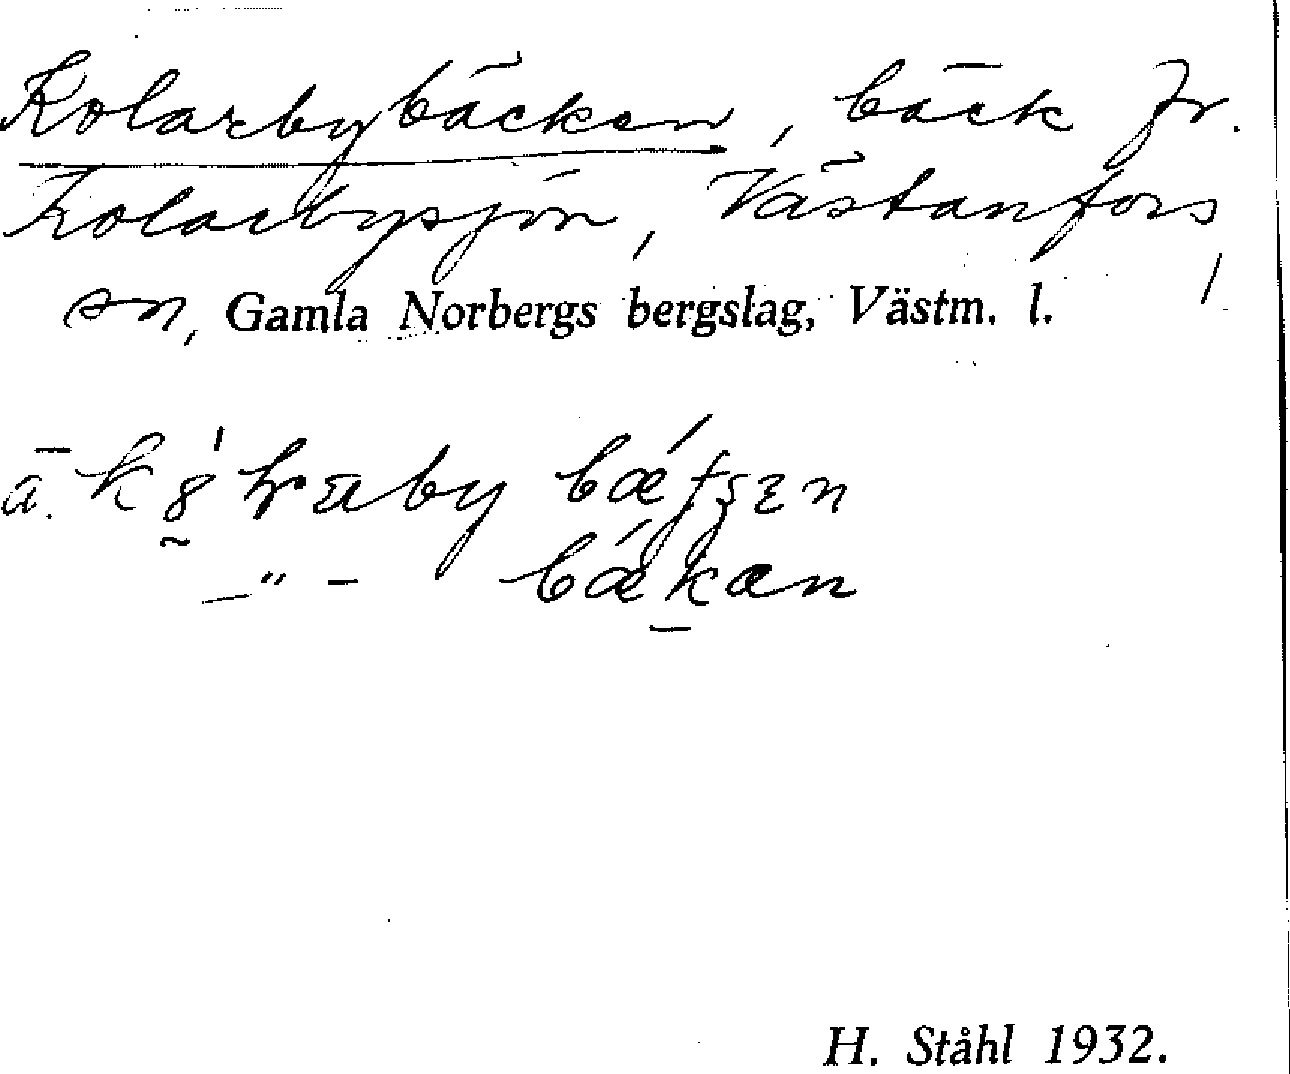 Kolarbybäcken, bäck fr.
Kolarbysjön, Västanfors
sn, Gamla Norbergs bergslag, Västm. l.
by
—"—
H. Ståhl 1932.